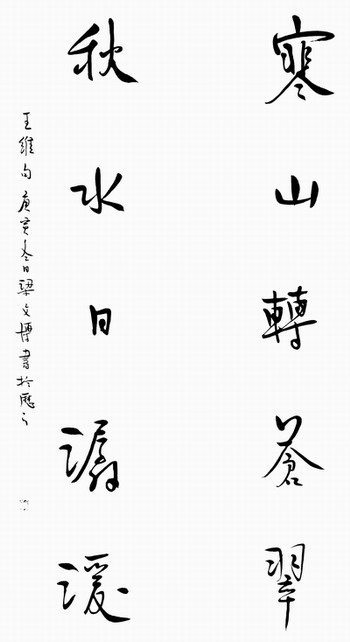 寒山轉蒼翠
秋水日潺湲
王維句庚寅冬日梁文博書於歷下